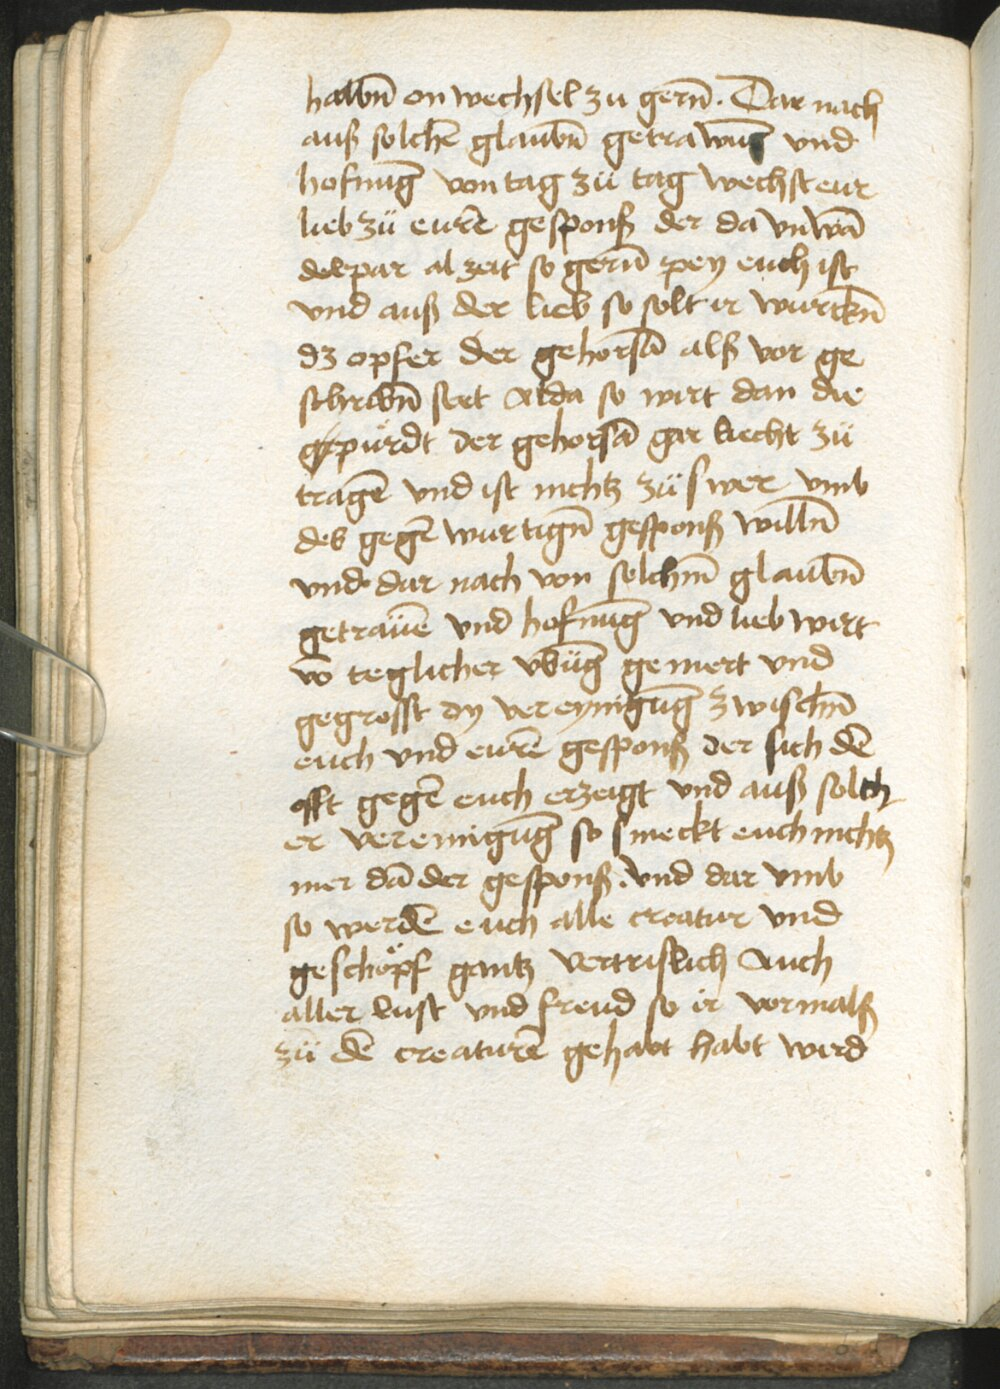 halbn̄ on wechsel zu gern̄. Dar nach
auß solchē glaubn̄ getrawūg vnd
hofnūg von tag zü tag wechst eur
lieb zü eurē gesponß der da vnwā
delpar al zeit so gern̄ pey euch ist
vnd auß der lieb so solt ir wurckn̄
dz opfer der gehorsā alß vor ge
schribn̄ stet Alda so wirt dan die
gepürdt der gehorsā gar liecht zü
tragē vnd ist nichtz zü swer vmb
des gegē wurtign̄ gesponß willn̄
vnd dar nach von solchm̄ glaubn̄
getrauē vnd hofnūg vnd lieb wirt
vō teglicher vbūg gemert vnd
gegrosst dy vereynigūg zwischn̄
euch vnd eurē gesponß der sich dē
offt gegē euch erzeigt vnd auß solch
er vereinigūg so smeckt euch nichtz
mer dā der gesponß. vnd dar vmb
so werdē euch alle creatur vnd
geschöpf gantz vertrislich Auch
aller lust vnd freud so ir vormalß
zü dē creaturē gehabt habt wird